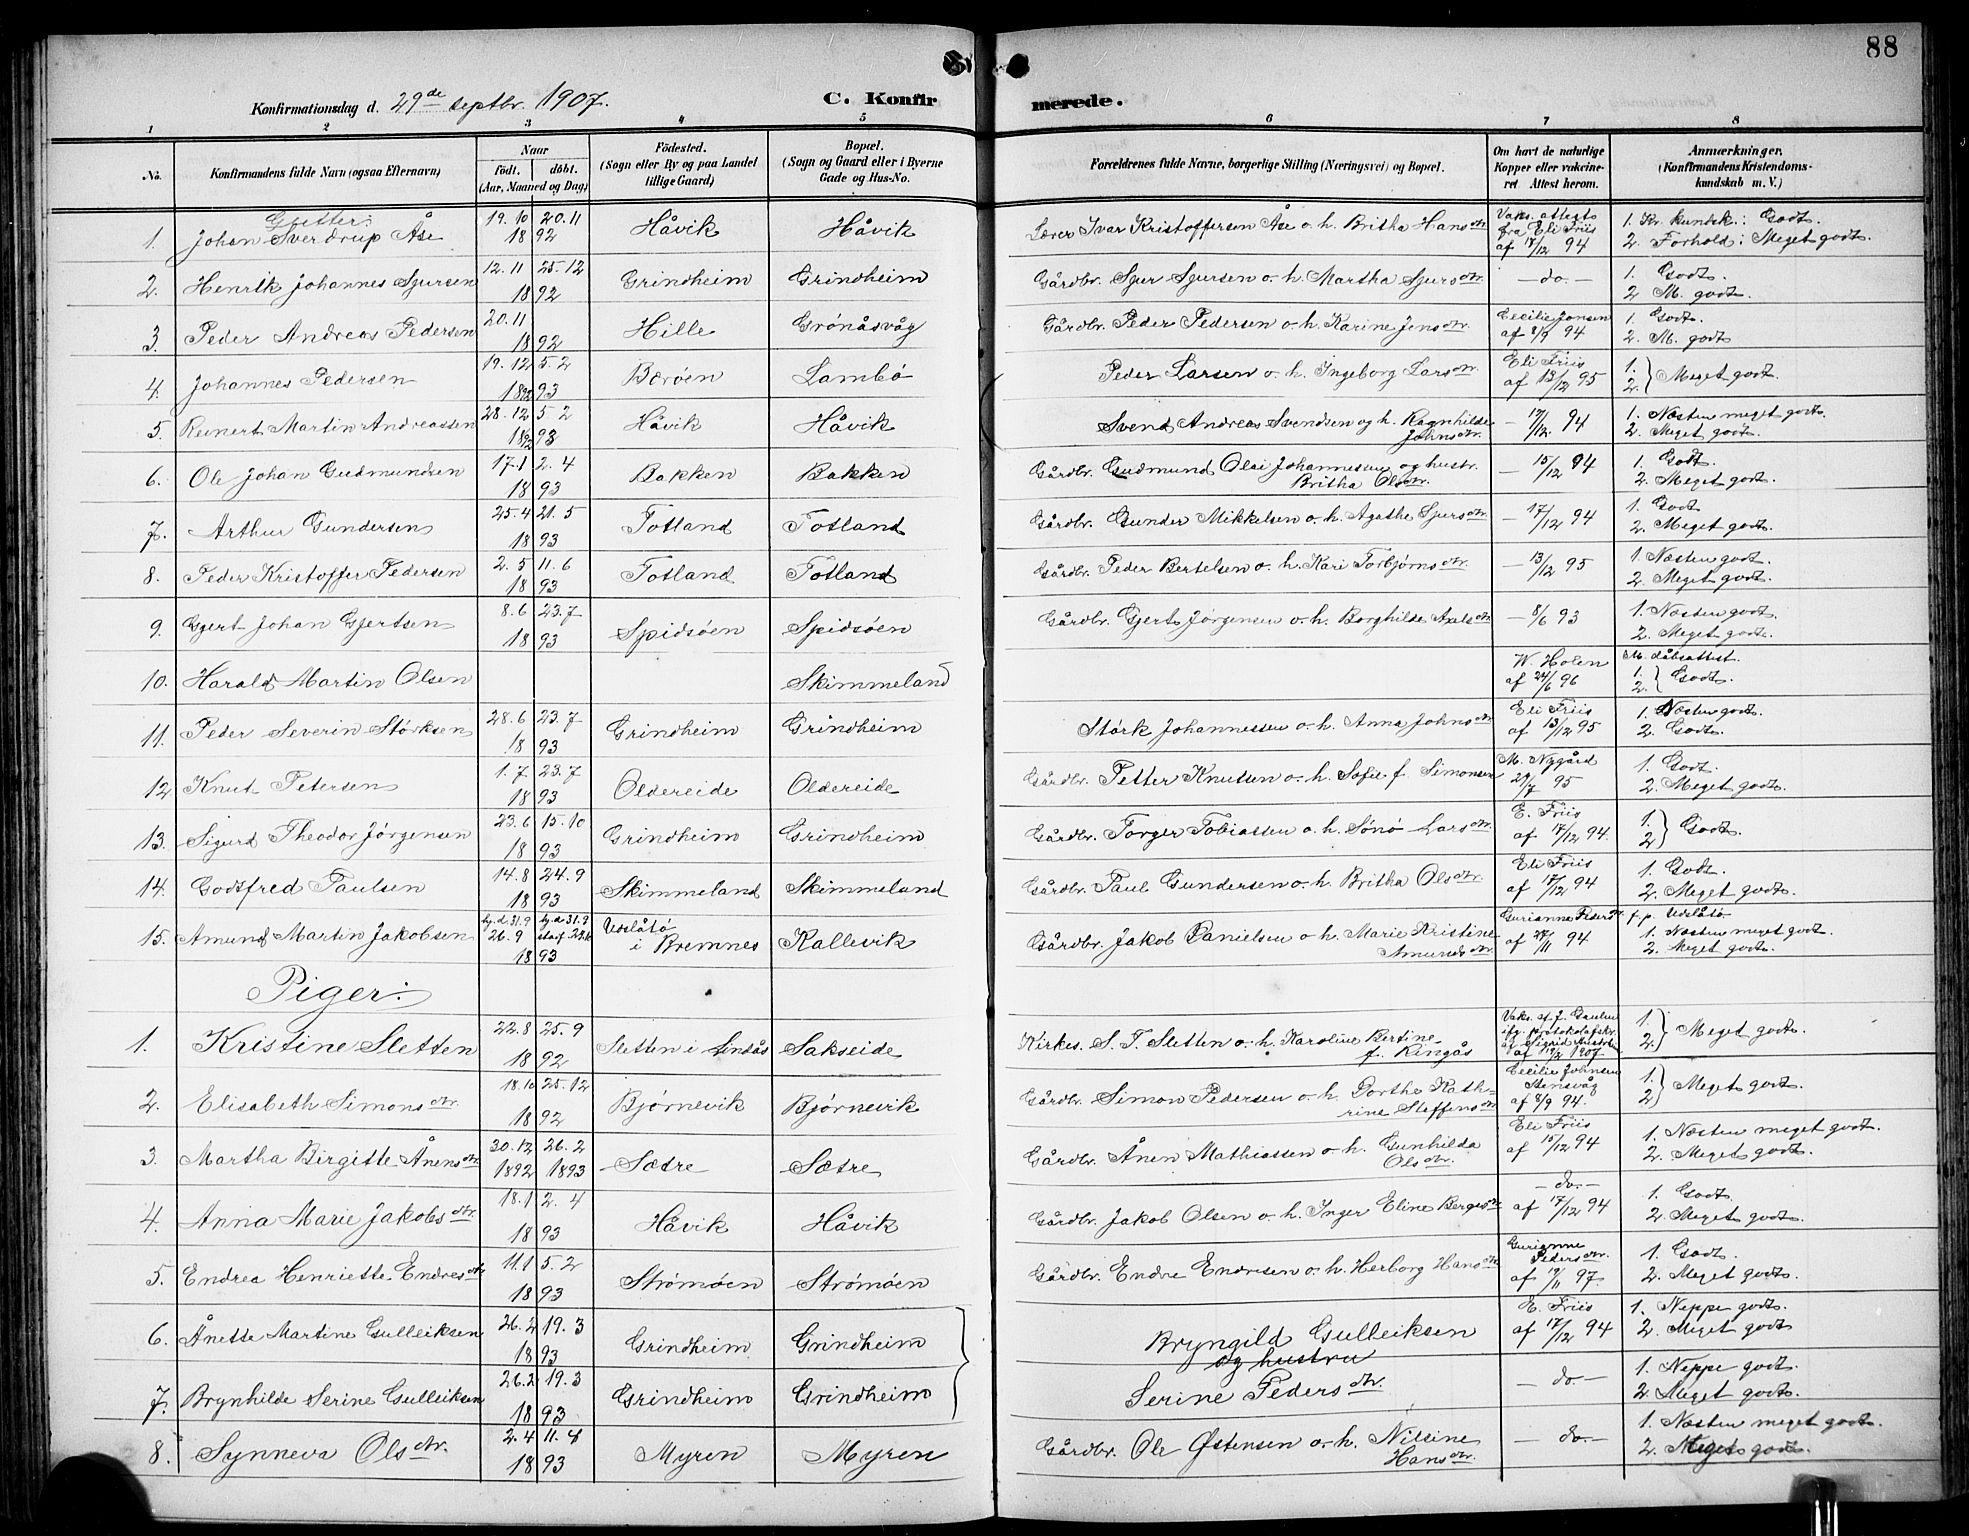 88
Konfirmationsdag d. 29de septbr. 1907. C. Konfirmerede.
1 2 3 4 5 6 7 8
No. Konfirmandens fulde Navn (ogsaa Efternavn) Naar født. døbt. (Aar, Maaned og Dag) Fødested. (Sogn eller By og paa Landet tillige Gaard) Bopæl. (Sogn og Gaard eller i Byerne Gade og Hus-No. Forældrenes fulde Navne, borgerlige Stilling (Næringsvei) og Bopæl. Om havt de naturlige Kopper eller vakcineret Attest herom. Anmærkninger. (Konfirmandens Kristendomskundskab m. V.)
Gutter:
1. Johan Sverdrup Åse 19.10 20.11 1892 Håvik Håvik Lærer Ivar Kristoffersen Åse o. h. Britha Hansdtr. Vaks. attest fra Eli Friis af 17/12 94 1. Kr. kundsk.: Godt. 2. Forhold: Meget godt.
2. Henrik Johannes Sjursen 12.11 25.12 1892 Grindheim Grindheim Gårdbr. Sjur Sjursen o. h. Martha Sjursdtr. — do — 1. Godt. 2 M. godt.
3. Peder Andreas Pedersen 20.11 1892 Hille Grønåsvåg Gårdbr. Peder Pedersen o. h. Karine Jensdtr. Cecilie Jonsen af 8/9 94 1. Godt. 2. M. godt
4. Johannes Pedersen 19.12 5.2 1892 93 Børøen Lambø Peder Larsen o. h. Ingeborg Larsdtr. Eli Friis af 13/12 95 1. 2. } Meget godt.
5. Reinert Martin Andreassen 28.12 5 2 1892 93 Håvik Håvik Svend Andreas Svendsen og h. Ragnhilde Johnsdtr. — 17/12 94 1. Næsten meget godt. 2. Meget godt.
6. Ole Johan Gudmundsen 17.1 2.4 1893 Bakken Bakken Gårdbr. Gudmund Olai Johannesen og hustr. Britha Olsdtr. — 15/12 94 1. Godt. 2. Meget godt.
7. Arthur Gundersen 25.4 21.5 1893 Totland Totland Gårdbr. Gunder Mikkelsen o. h. Agathe Sjursdtr. — 17/12 94 1. Godt 2. Meget godt.
8. Peder Kristoffer Pedersen 2.5 11.6 1893 Totland Totland Gårdbr. Peder Bertelsen o. h. Kari Torbjørnsdtr. — 13/12 95 1. Næsten godt. 2. Meget godt.
9. Gjert Johan Gjertsen 8.6 23.7 1893 Spidsøen Spidsøen Gårdbr. Gjert Jørgensen o. h. Borghilde Axelsdtr. — 8/6 93 1. Næsten godt. 2. Meget godt.
10. Harald Martin Olsen Skimmeland W. Holen af 24/6 96 M. dåbsattest. 1. 2. } Godt.
11. Peder Severin Størksen 28.6 23.7 1893 Grindheim Grindheim Størk Johannessen o. h. Anna Johnsdtr. Eli Friis af 13/12 95 1. Næsten godt. 2. Godt.
12 Knut Petersen 1.7 23.7 1893 Oldereide Oldereide Gårdbr. Petter Knutsen o. h. Sofie f. Simonsen M. Nygård 29/7 95 1. Godt. 2. Meget godt.
13. Sigurd Theodor Jørgensen 23.6 15.10 1893 Grindheim Grindheim Gårdbr. Torger Tobiassen o. h. Sønø Larsdtr. E. Friis af 17/12 94. 1. 2 } Godt.
14. Godtfred Paulsen 14.8 24.9 1893 Skimmeland Skimmeland Gårdbr. Paul Gundersen o. h. Britha Olsdtr. Eli Friis af 17/12 94 1. Godt. 2. Meget godt.
15. Amund Martin Jakobsen hj.d. 31.9 26.9 1893 Udslåtø i Bremnes Kallevik Gårdbr. Jakob Danielsen o. h. Marie Kristine Amundsdtr. Gurianne Pedersdtr. af 27/11 94 f. p. Udslåtø 1. Næsten meget godt. 2. Meget godt.
Piger:
1. Kristine Sletten 22.8 25.9 1892 Sletten i Lindås Sakseide Kirkes. S. T. Sletten o. h. Karoline Bertine f. Ringås Vaks. af J. Paulsen ifg. protokolafskr. af 19/2 1907. 1. 2. } Meget godt.
2. Elisabeth Simonsdtr. 18.10 25.12 1892 Bjørnevik Bjørnevik Gårdbr. Simon Pedersen o. h. Dorthe Kathrine Steffensdtr. Cecilie Johnsen Stensvåg af 8/9 94. 1. 2 } Meget godt.
3. Martha Birgitte Ånensdtr. 30.12 26.2 1892 1893 Sætre Sætre Gårdbr. Ånen Mathiassen o. h. Gunhilda Olsdtr. Eli Friis af 15/12 94 1. Næsten meget godt. 2. Meget godt.
4. Anna Marie Jakobsdtr. 18.1 2.4 1893 Håvik Håvik Gårdbr. Jakob Olsen o. h. Inger Eline Bergesdtr. — do. — af 17/12 94 1. Godt. 2. Meget godt.
5. Endrea Henriette Endresdtr. 11.1 5.2 1893 Strømøen Strømøen Gårdbr. Endre Endresen o. h. Herborg Hansdtr. Gurianne Pedersdtr. af 19/11 97. 1. Godt. 2. Meget godt.
6. Ånette Martine Gulleiksen 26.2 19.3 1893 Grindheim Grindheim Bryngild Gulleiksen og hustru E. Friis af 17/12 94 1. Neppe godt. 2. Meget godt
7. Brynhilde Serine Gulleiksen 26.2 19.3 1893 Grindheim Grindheim Serine Pedersdtr. — do — 1. Neppe godt. 2. Meget godt.
8. Synneva Olsdtr. 2.4 11.4 1893 Myren Myren Gårdbr. Ole Østensen o. h. Nilsine Hansdtr. — do. — 1. Næsten meget godt. 2. Meget godt.